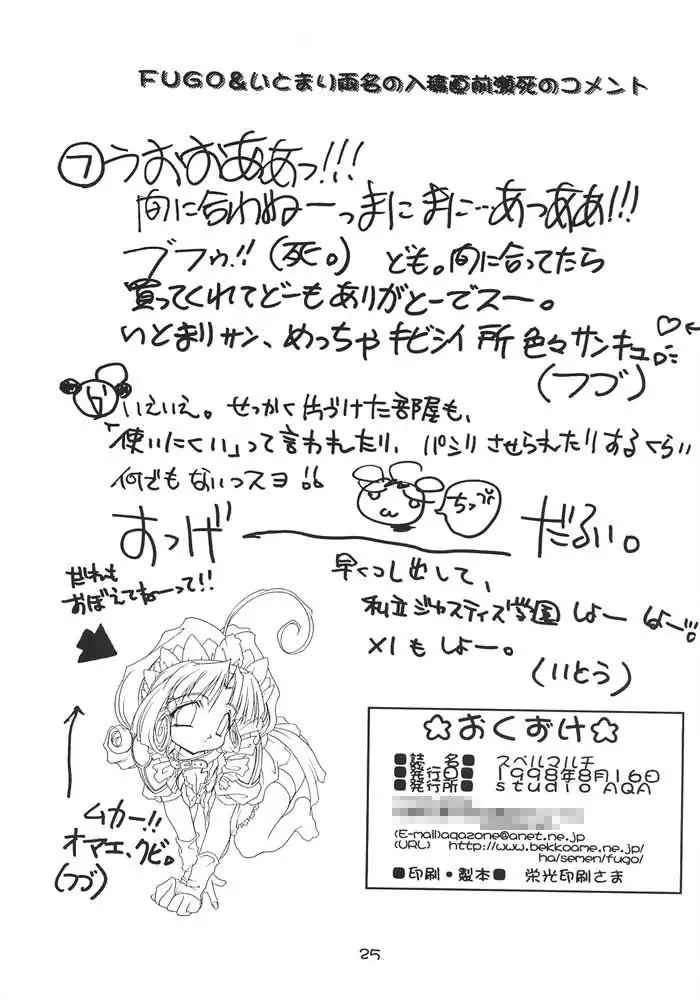 FUGO&いとまり両名の入稿直前瀕死のコメント
フ うおおおああっ!!!
間に合わぬーっまにまに…あっああ!!!
ブフゥ!!(死。) ども。間に合ってたら
買ってくれてどーもありがとーでスー。
いとまりサン、めっちゃキビシイ所色々サンキュ♡
(フづ)
いえいえ。せっかく片づけた部屋も、
「使いにくい」って言われたり、パシリさせられたりするくらい
何でもないっスヨ!!
ちっ
おっげーだるい。
だれも
おぼえてねーって!!
早くつし出して、
私立ジャスティス学園しよー しよー!!
XIもしよー。
(いとう)
ムカー!!
オマエ、クビ。
(フづ)
☆おくづけ☆
■誌 名■ スペルマルチ
■発行日■ 1998年8月16日
■発行所■ studio AQA
(E-mail)aqazone@anet.ne.jp
(URL) http://www.bekkoame.ne.jp/
ha/semen/fugo/
■印刷・製本■ 栄光印刷さま
25